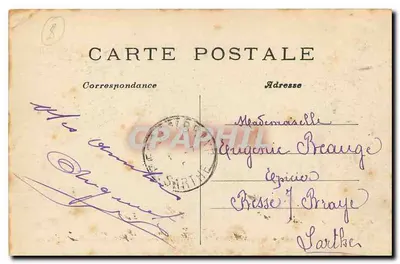 CARTE POSTALE
Correspondance
Adresse
Mes amitiés
Mademoiselle
Eugénie Beaugé
Epicier
Besse s/ Braye
Sarthe
SARTHE
CPAPHIL